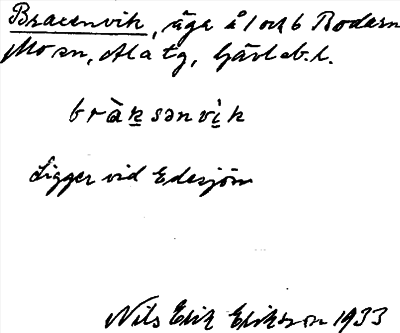 Bracenvik, äga å 1 och 6 Rodarn
Mo sn, Ala tg, Gävleb. l.
bràksənvìk
Ligger vid Edesjön
Nils Erik Erikson 1933